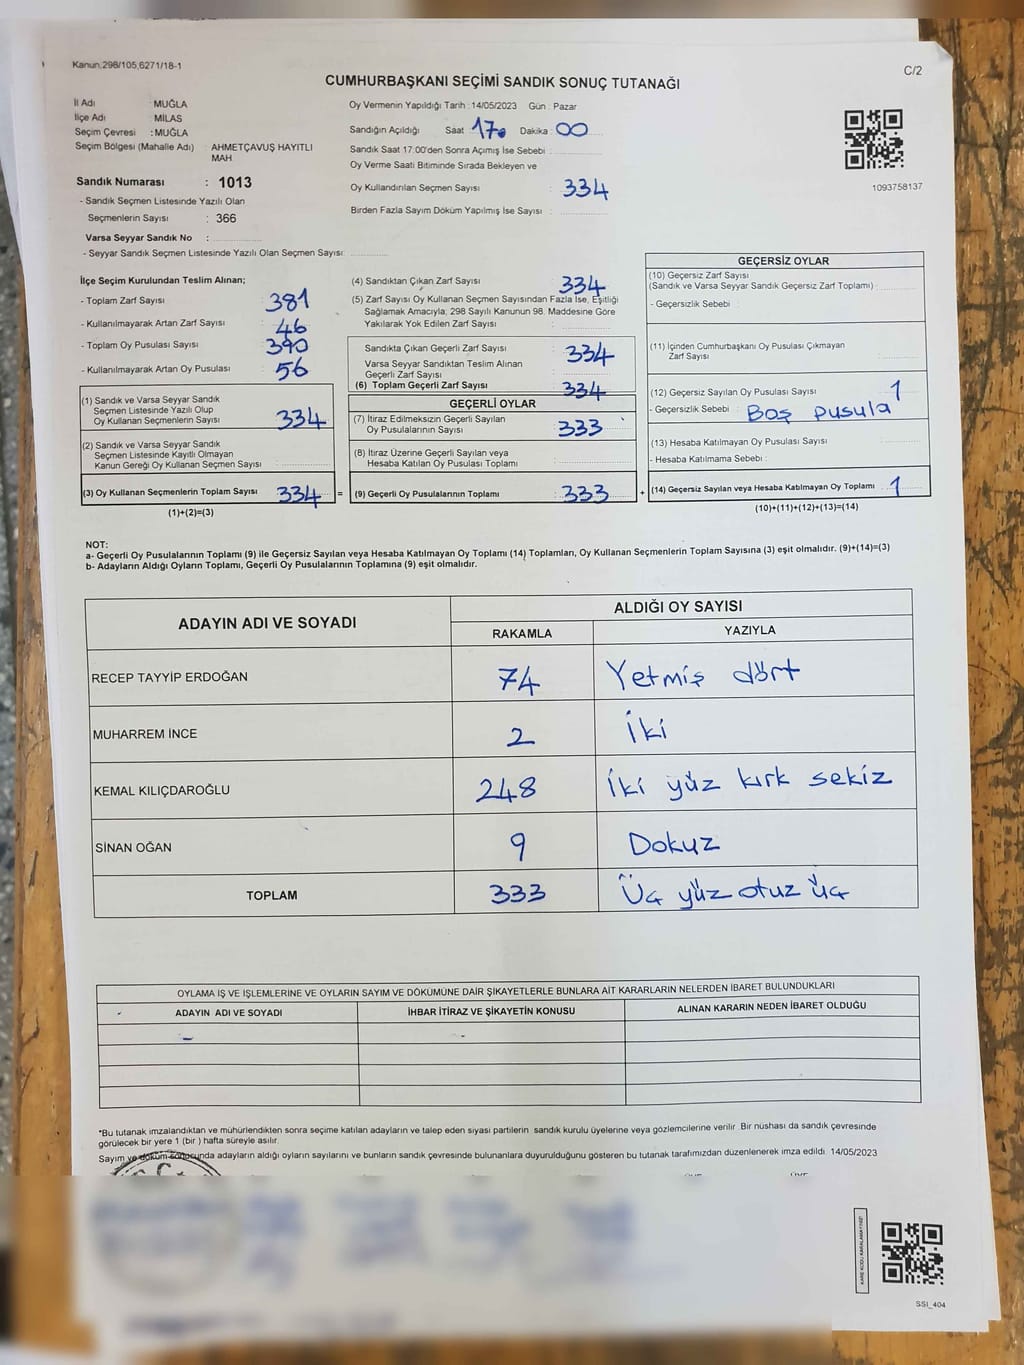 Kanun.298/105,6271/18-1
C/2
CUMHURBAŞKANI SEÇİMİ SANDIK SONUÇ TUTANAĞI
İl Adı : MUĞLA
İlçe Adı : MİLAS
Seçim Çevresi : MUĞLA
Seçim Bölgesi (Mahalle Adı) : AHMETÇAVUŞ HAYITLI
MAH.
Sandık Numarası : 1013
- Sandık Seçmen Listesinde Yazılı Olan
Seçmenlerin Sayısı : 366
Varsa Seyyar Sandık No :
- Seyyar Sandık Seçmen Listesinde Yazılı Olan Seçmen Sayısı:
Oy Vermenin Yapıldığı Tarih : 14/05/2023 Gün : Pazar
Sandığın Açıldığı Saat 17 Dakika : 00
Sandık Saat 17.00'den Sonra Açımış İse Sebebi :
Oy Verme Saati Bitiminde Sırada Bekleyen ve
Oy Kullandırılan Seçmen Sayısı : 334
Birden Fazla Sayım Döküm Yapılmış İse Sayısı :
1093758137
İlçe Seçim Kurulundan Teslim Alınan;
- Toplam Zarf Sayısı : 381
- Kullanılmayarak Artan Zarf Sayısı : 46
- Toplam Oy Pusulası Sayısı : 390
- Kullanılmayarak Artan Oy Pusulası : 56
(1) Sandık ve Varsa Seyyar Sandık
Seçmen Listesinde Yazılı Olup
Oy Kullanan Seçmenlerin Sayısı : 334
(2) Sandık ve Varsa Seyyar Sandık
Seçmen Listesinde Kayıtlı Olmayan
Kanun Gereği Oy Kullanan Seçmen Sayısı :
(3) Oy Kullanan Seçmenlerin Toplam Sayısı : 334 =
(1)+(2)=(3)
(4) Sandıktan Çıkan Zarf Sayısı : 334
(5) Zarf Sayısı Oy Kullanan Seçmen Sayısından Fazla İse, Eşitliği
Sağlamak Amacıyla; 298 Sayılı Kanunun 98. Maddesine Göre
Yakılarak Yok Edilen Zarf Sayısı :
Sandıkta Çıkan Geçerli Zarf Sayısı : 334
Varsa Seyyar Sandıktan Teslim Alınan
Geçerli Zarf Sayısı :
(6) Toplam Geçerli Zarf Sayısı : 334
GEÇERLİ OYLAR
(7) İtiraz Edilmeksizin Geçerli Sayılan
Oy Pusulalarının Sayısı : 333
(8) İtiraz Üzerine Geçerli Sayılan veya
Hesaba Katılan Oy Pusulası Toplamı :
(9) Geçerli Oy Pusulalarının Toplamı : 333 +
GEÇERSİZ OYLAR
(10) Geçersiz Zarf Sayısı
(Sandık ve Varsa Seyyar Sandık Geçersiz Zarf Toplamı) :
- Geçersizlik Sebebi :
(11) İçinden Cumhurbaşkanı Oy Pusulası Çıkmayan
Zarf Sayısı :
(12) Geçersiz Sayılan Oy Pusulası Sayısı : 1
- Geçersizlik Sebebi : Boş pusula
(13) Hesaba Katılmayan Oy Pusulası Sayısı :
- Hesaba Katılmama Sebebi :
(14) Geçersiz Sayılan veya Hesaba Katılmayan Oy Toplamı : 1
(10)+(11)+(12)+(13)=(14)
NOT:
a- Geçerli Oy Pusulalarının Toplamı (9) ile Geçersiz Sayılan veya Hesaba Katılmayan Oy Toplamı (14) Toplamları, Oy Kullanan Seçmenlerin Toplam Sayısına (3) eşit olmalıdır. (9)+(14)=(3)
b- Adayların Aldığı Oyların Toplamı, Geçerli Oy Pusulalarının Toplamına (9) eşit olmalıdır.
ADAYIN ADI VE SOYADI ALDIĞI OY SAYISI
RAKAMLA YAZIYLA
RECEP TAYYİP ERDOĞAN 74 Yetmiş dört
MUHARREM İNCE 2 İki
KEMAL KILIÇDAROĞLU 248 İki yüz kırk sekiz
SİNAN OĞAN 9 Dokuz
TOPLAM 333 Üç yüz otuz üç
OYLAMA İŞ VE İŞLEMLERİNE VE OYLARIN SAYIM VE DÖKÜMÜNE DAİR ŞİKAYETLERLE BUNLARA AİT KARARLARIN NELERDEN İBARET BULUNDUKLARI
ADAYIN ADI VE SOYADI İHBAR İTİRAZ VE ŞİKAYETİN KONUSU ALINAN KARARIN NEDEN İBARET OLDUĞU
*Bu tutanak imzalandıktan ve mühürlendikten sonra seçime katılan adayların ve talep eden siyasi partilerin sandık kurulu üyelerine veya gözlemcilerine verilir. Bir nüshası da sandık çevresinde
görülecek bir yere 1 (bir ) hafta süreyle asılır.
Sayım ve döküm sonucunda adayların aldığı oyların sayılarını ve bunların sandık çevresinde bulunanlara duyurulduğunu gösteren bu tutanak tarafımızdan düzenlenerek imza edildi. 14/05/2023
KARE KODU KARALAMAYINIZ!
SSI_404